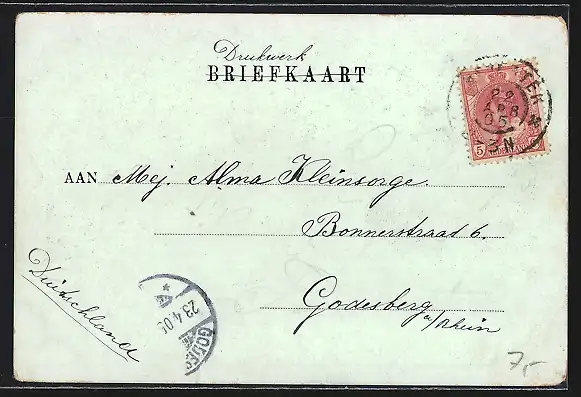 Drukwerk
BRIEFKAART
22
APR
05
3N
5
AAN Mej. Alma Kleinsorge.
Bonnerstraat 6.
Godesberg
a/Rhein
Duitschland
23.4.05
7,-